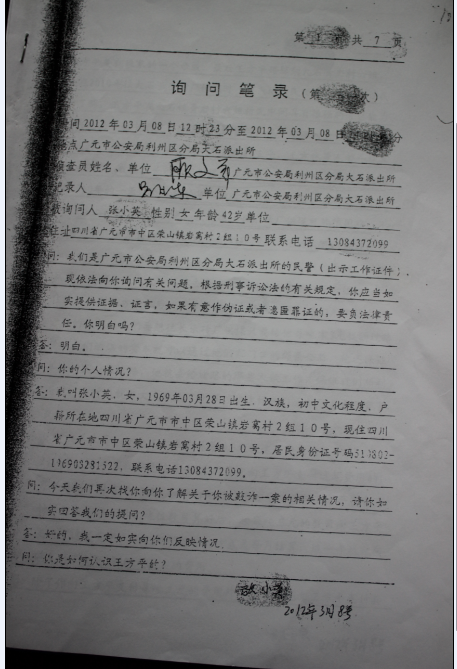 第 页 共 7 页
询 问 笔 录（第 次）
时间2012年03月08日12时23分至2012年03月08日 分
地点广元市公安局利州区分局大石派出所
侦查员姓名、单位 广元市公安局利州区分局大石派出所
记录人 单位广元市公安局利州区分局大石派出所
被询问人 张小英 性别 女 年龄 42岁 单位
住址四川省广元市市中区荣山镇岩窝村2组10号 联系电话 13084372099
问：我们是广元市公安局利州区分局大石派出所的民警（出示工作证件），
现依法向你询问有关问题。根据刑事诉讼法的有关规定，你应当如
实提供证据、证言，如果有意作伪证或者隐匿罪证的，要负法律责
任。你明白吗？
答：明白。
问：你的个人情况？
答：我叫张小英，女，1969年03月28日出生，汉族，初中文化程度，户
籍所在地四川省广元市市中区荣山镇岩窝村2组10号，现住四川
省广元市市中区荣山镇岩窝村2组10号，居民身份证号码
，联系电话13084372099。
问：今天我们再次找你向你了解关于你被敲诈一案的相关情况，请你如
实回答我们的提问？
答：好的，我一定如实向你们反映情况。
问：你是如何认识王方平的？
张小英
2012年3月8号